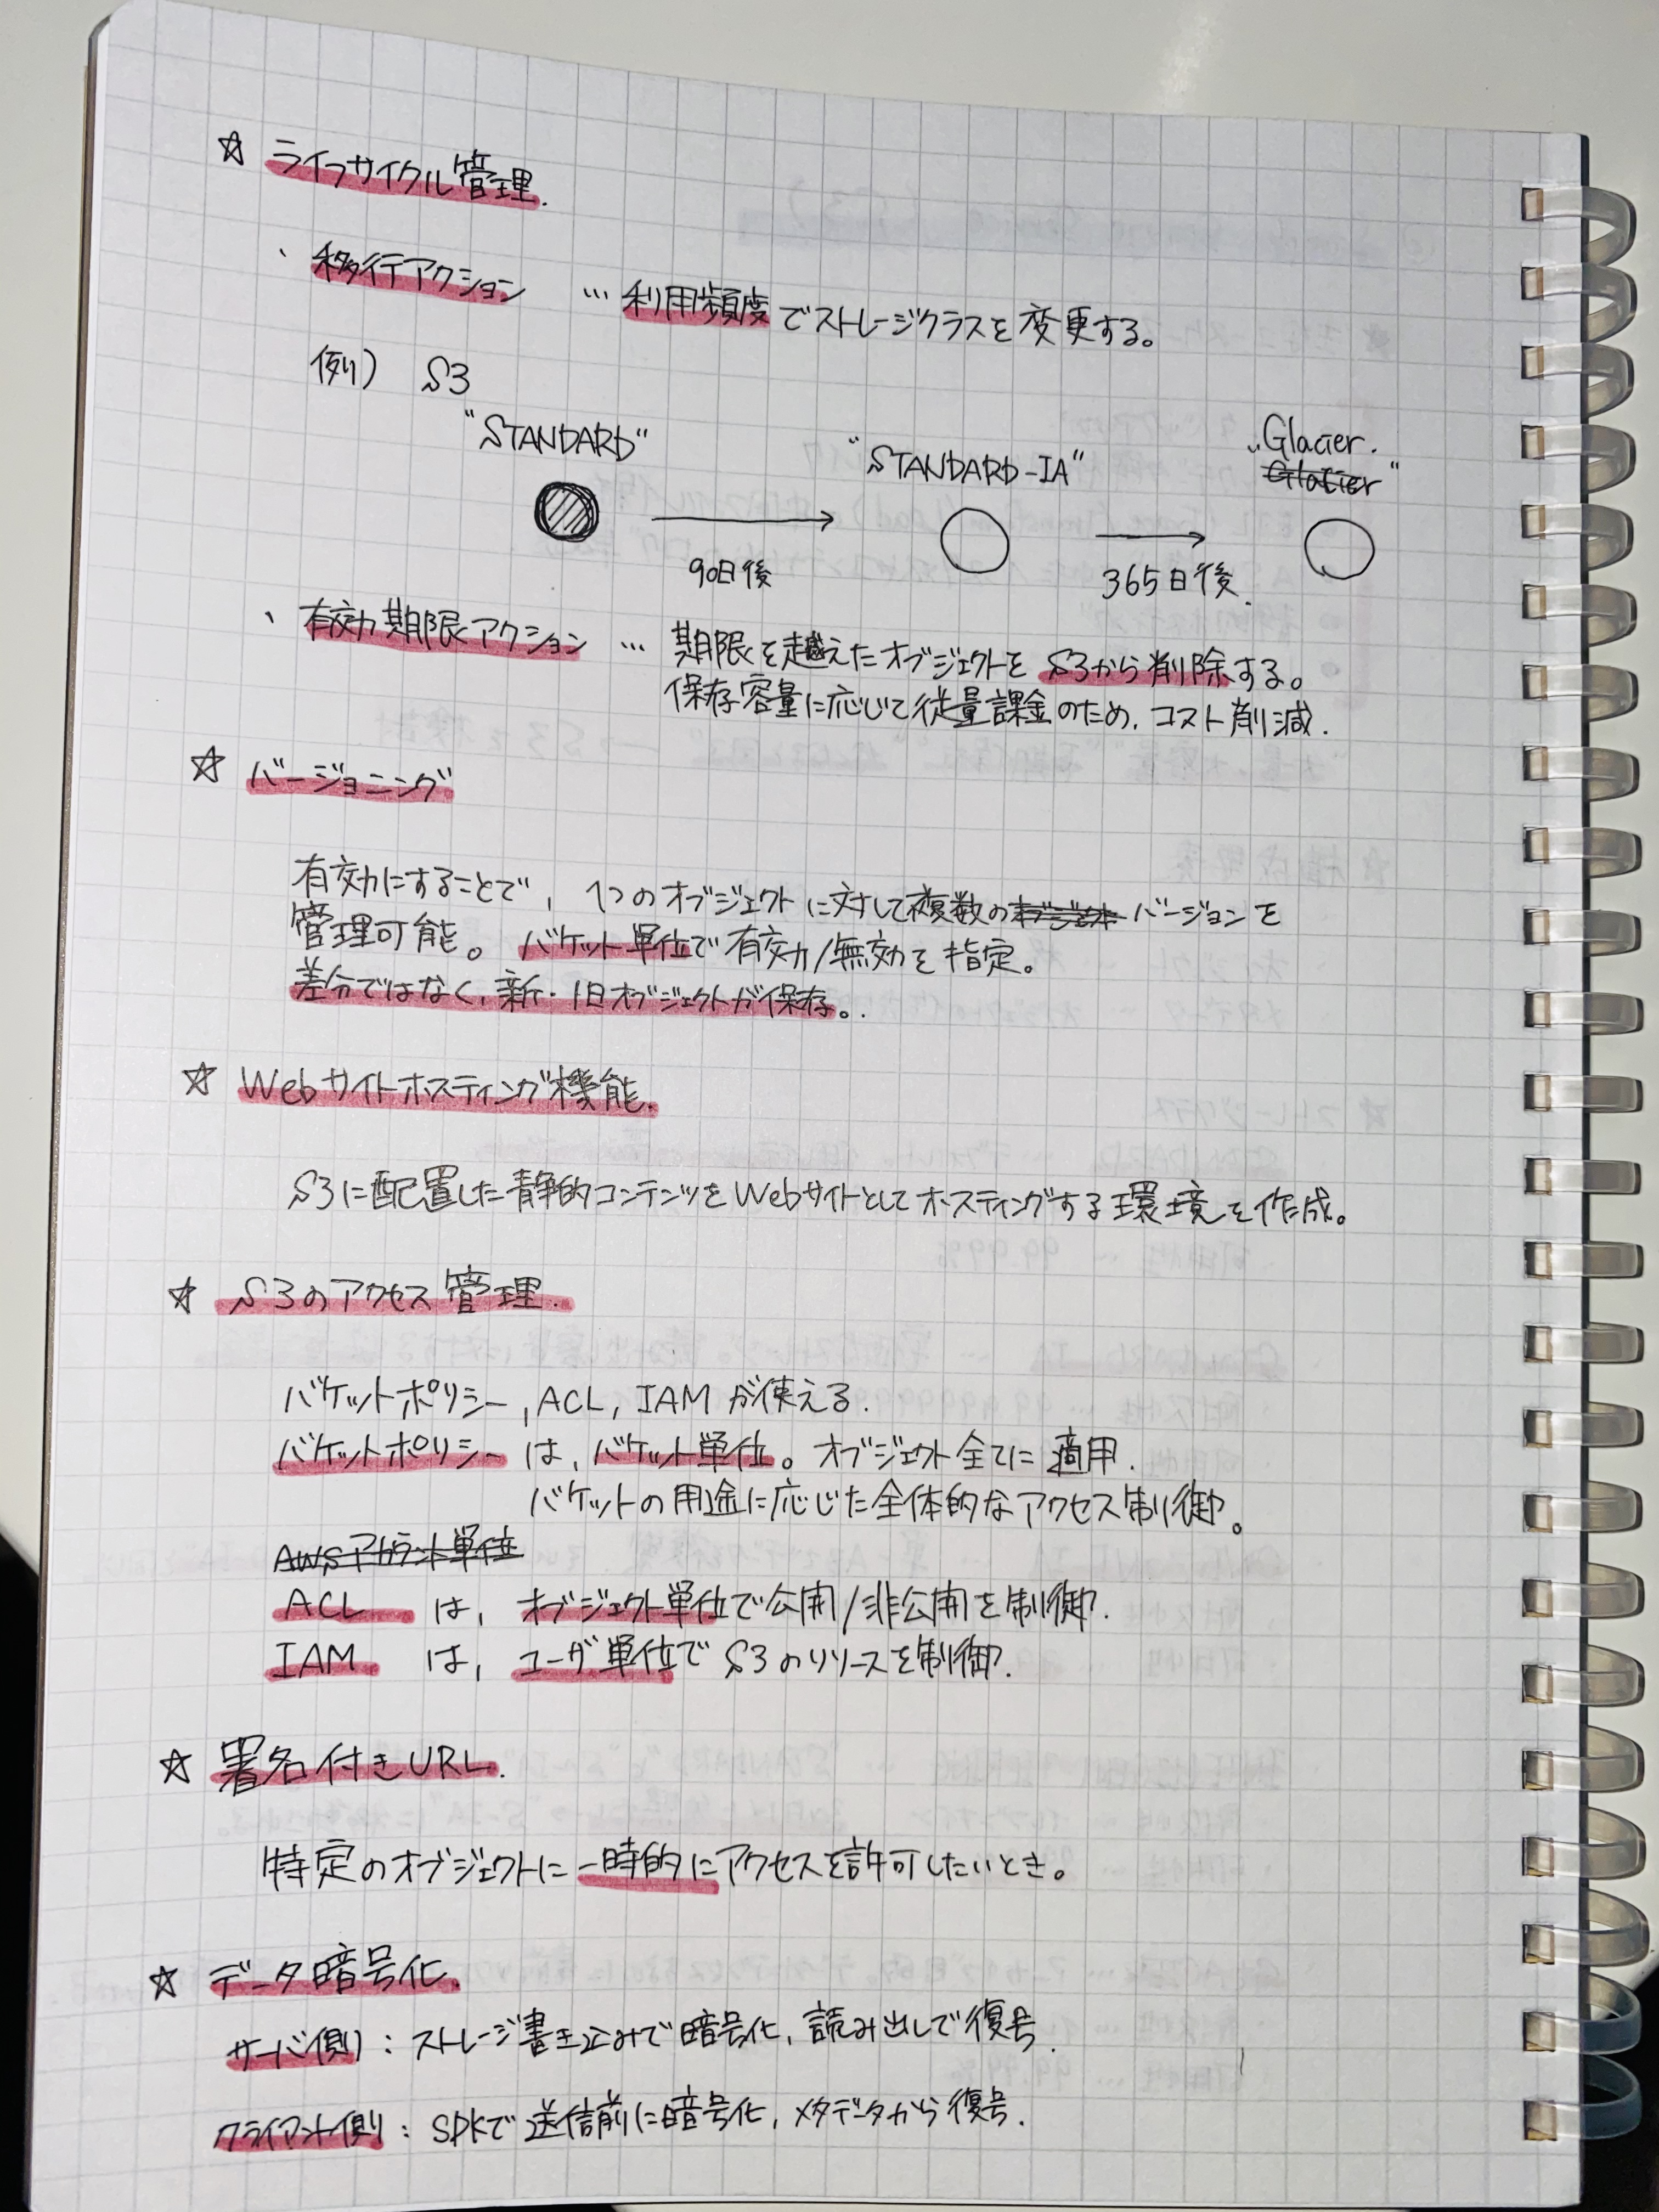 ☆ ライフサイクル管理.
、移行アクション … 利用頻度でストレージクラスを変更する。
例) S3
"STANDARD" "STANDARD-IA" "Glacier. Glacier"
90日後 365日後.
、有効期限アクション … 期限を越えたオブジェクトを S3から削除する。
保存容量に応じて従量課金のため, コスト削減.
☆ バージョニング
有効にすることで, 1つのオブジェクトに対して複数のオブジェクト バージョンを
管理可能。 バケット単位で有効/無効を指定。
差分ではなく, 新・旧オブジェクトが保存。.
☆ Webサイトホスティング機能.
S3に配置した静的コンテンツをWebサイトとしてホスティングする環境を作成。
☆ S3のアクセス管理.
バケットポリシー, ACL, IAM が使える.
バケットポリシー は, バケット単位。オブジェクト全てに適用.
バケットの用途に応じた全体的なアクセス制御。
AWSアカウント単位
ACL は, オブジェクト単位で公開/非公開を制御.
IAM は, ユーザ単位で S3のリソースを制御.
☆ 署名付きURL.
特定のオブジェクトに一時的にアクセスを許可したいとき。
☆ データ暗号化.
サーバ側 : ストレージ書き込みで暗号化, 読み出しで復号.
クライアント側 : SDKで送信前に暗号化, メタデータから復号.